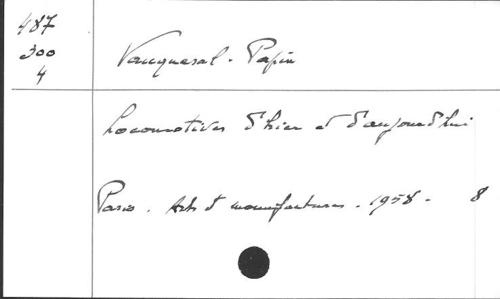 487
300
4
Vauquesal-Papin
Locomotives d'hier et d'aujourd'hui
Paris. Arts et manufactures. 1958. 8